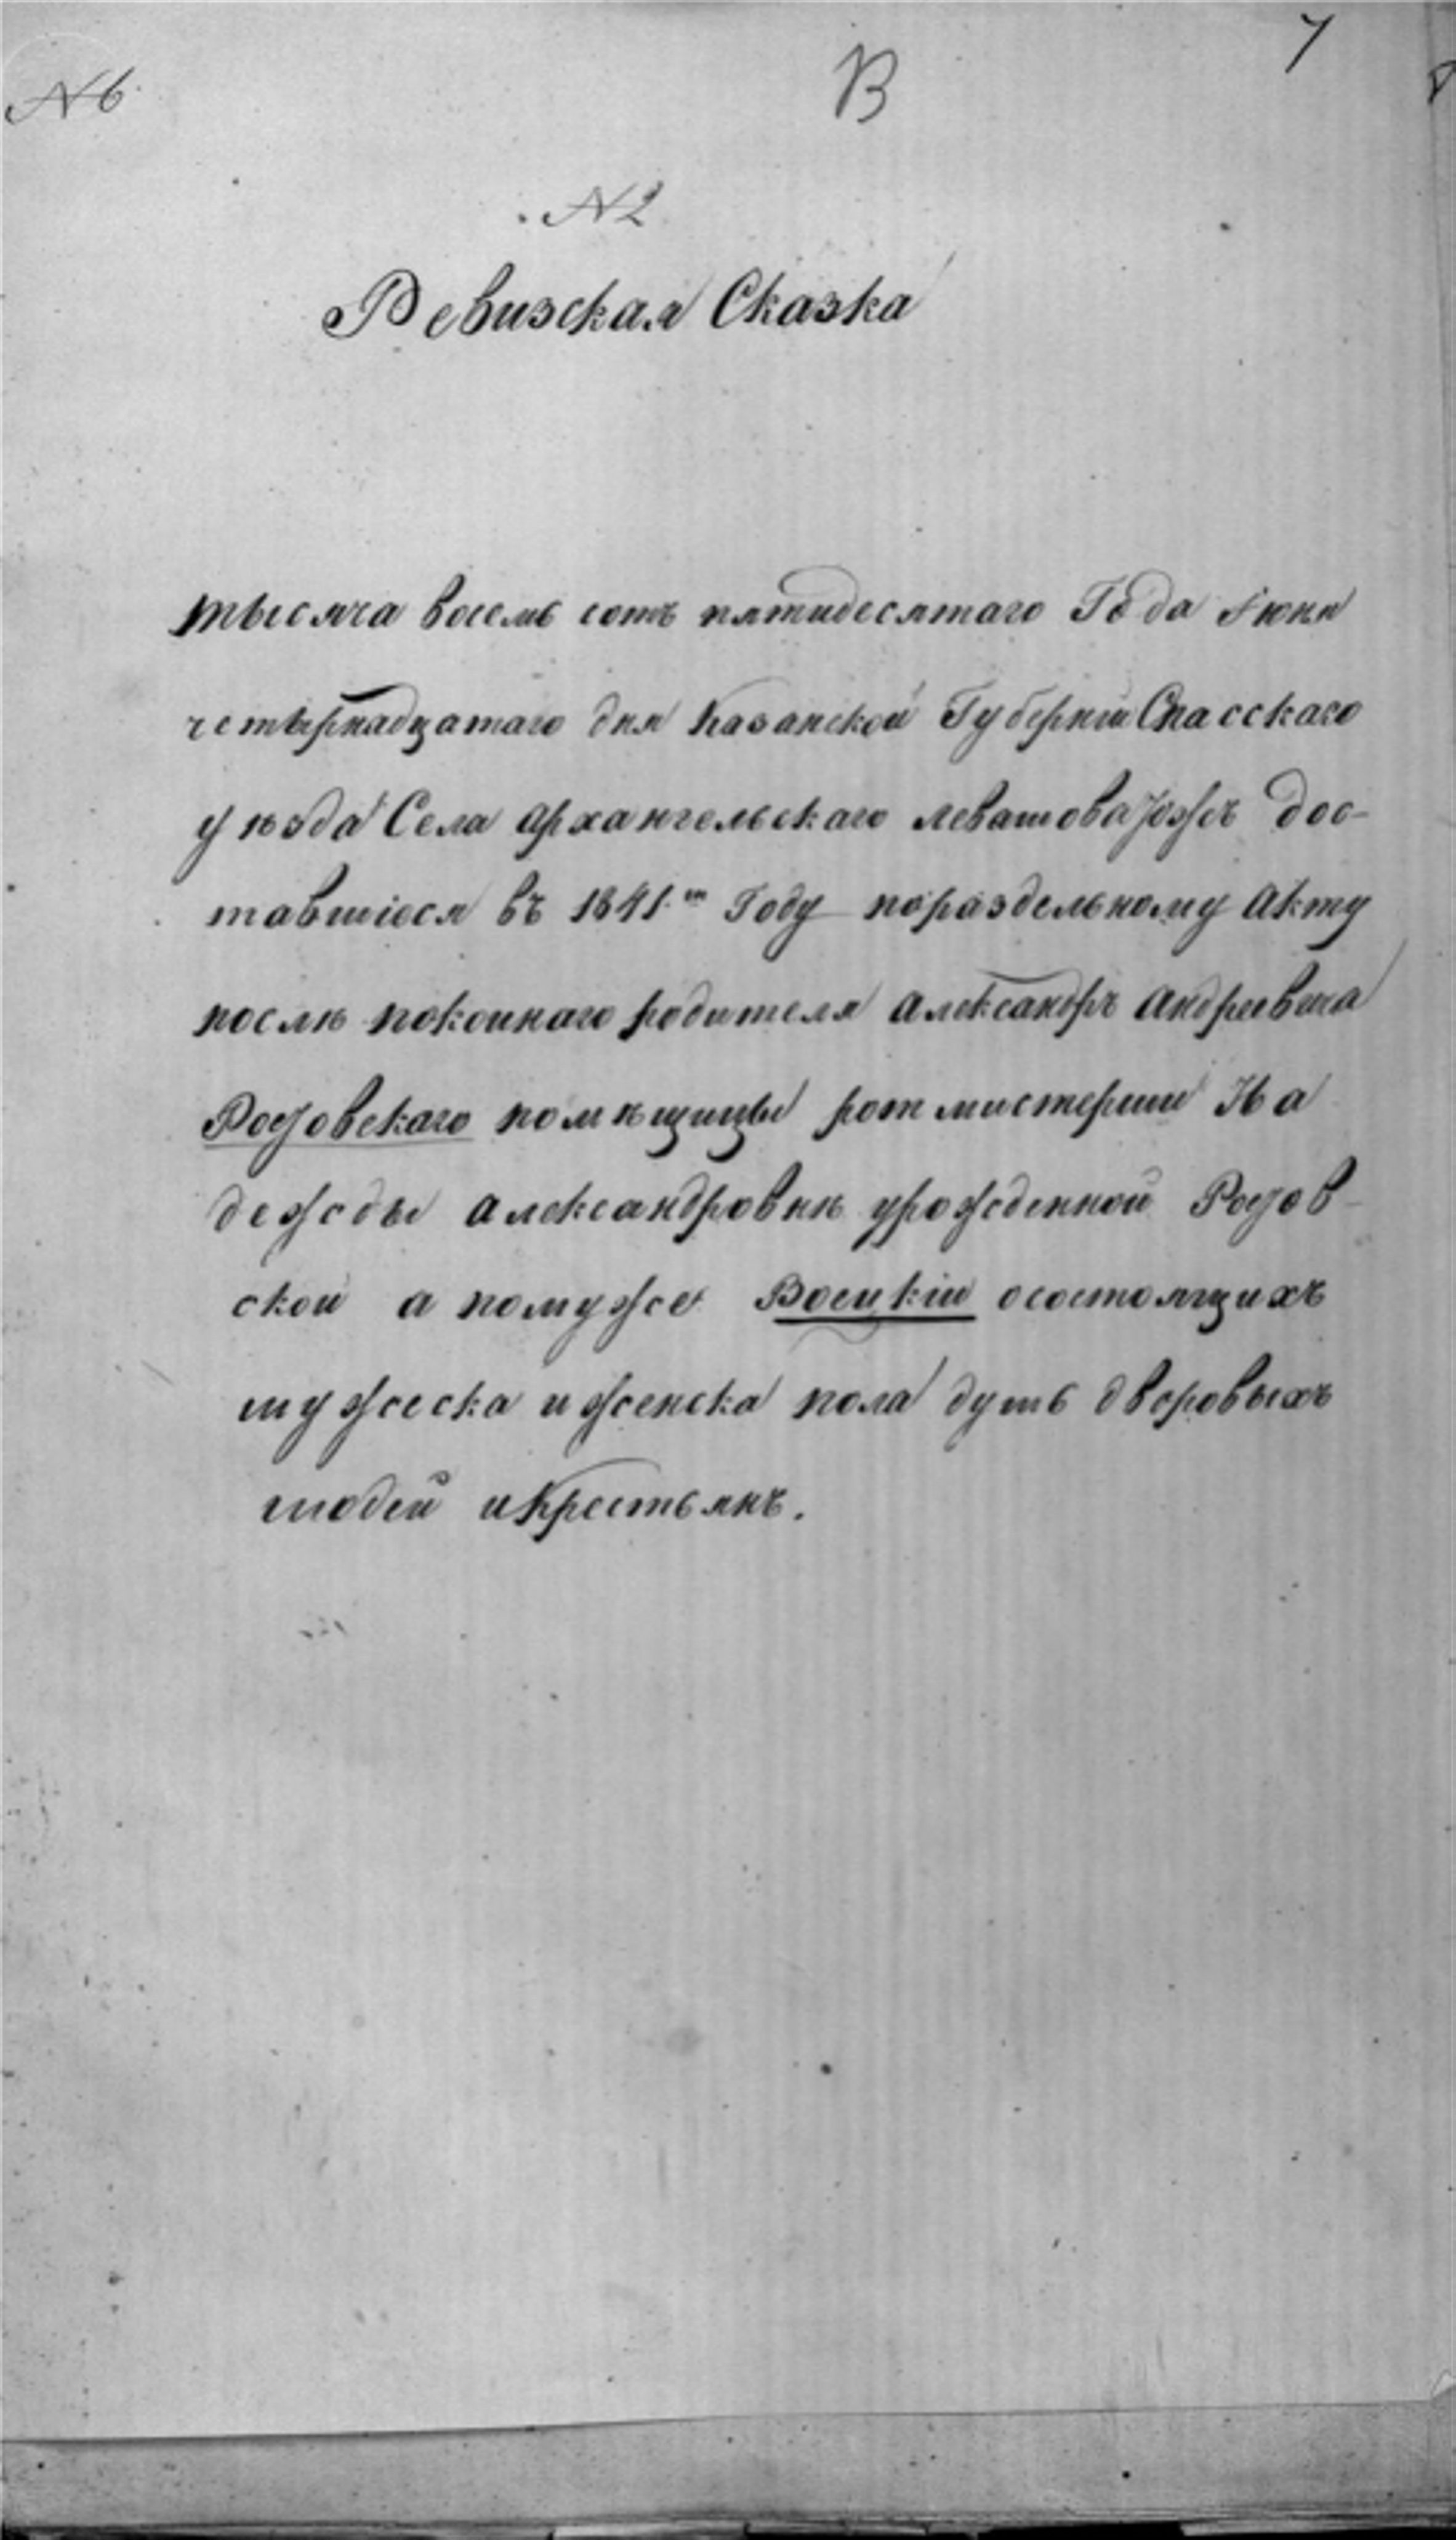 7
№ 6
В
№ 2
Ревизская Сказка
тысяча восемь сотъ пятидесятаго Года Іюня
четырнадцатаго дня Казанской Губерніи Спасскаго
уѣзда Села Архангельскаго Левашова тожъ дос-
тавшіеся въ 1841.м Году пораздельному Акту
послѣ покоинаго родителя Александръ Андреевича
помѣщицы ротмистерши На
дежды Александровнѣ урожденной
ской а помуже осостоящихъ
мужеска иженска пола душъ дворовыхъ
людей икрестьянъ.